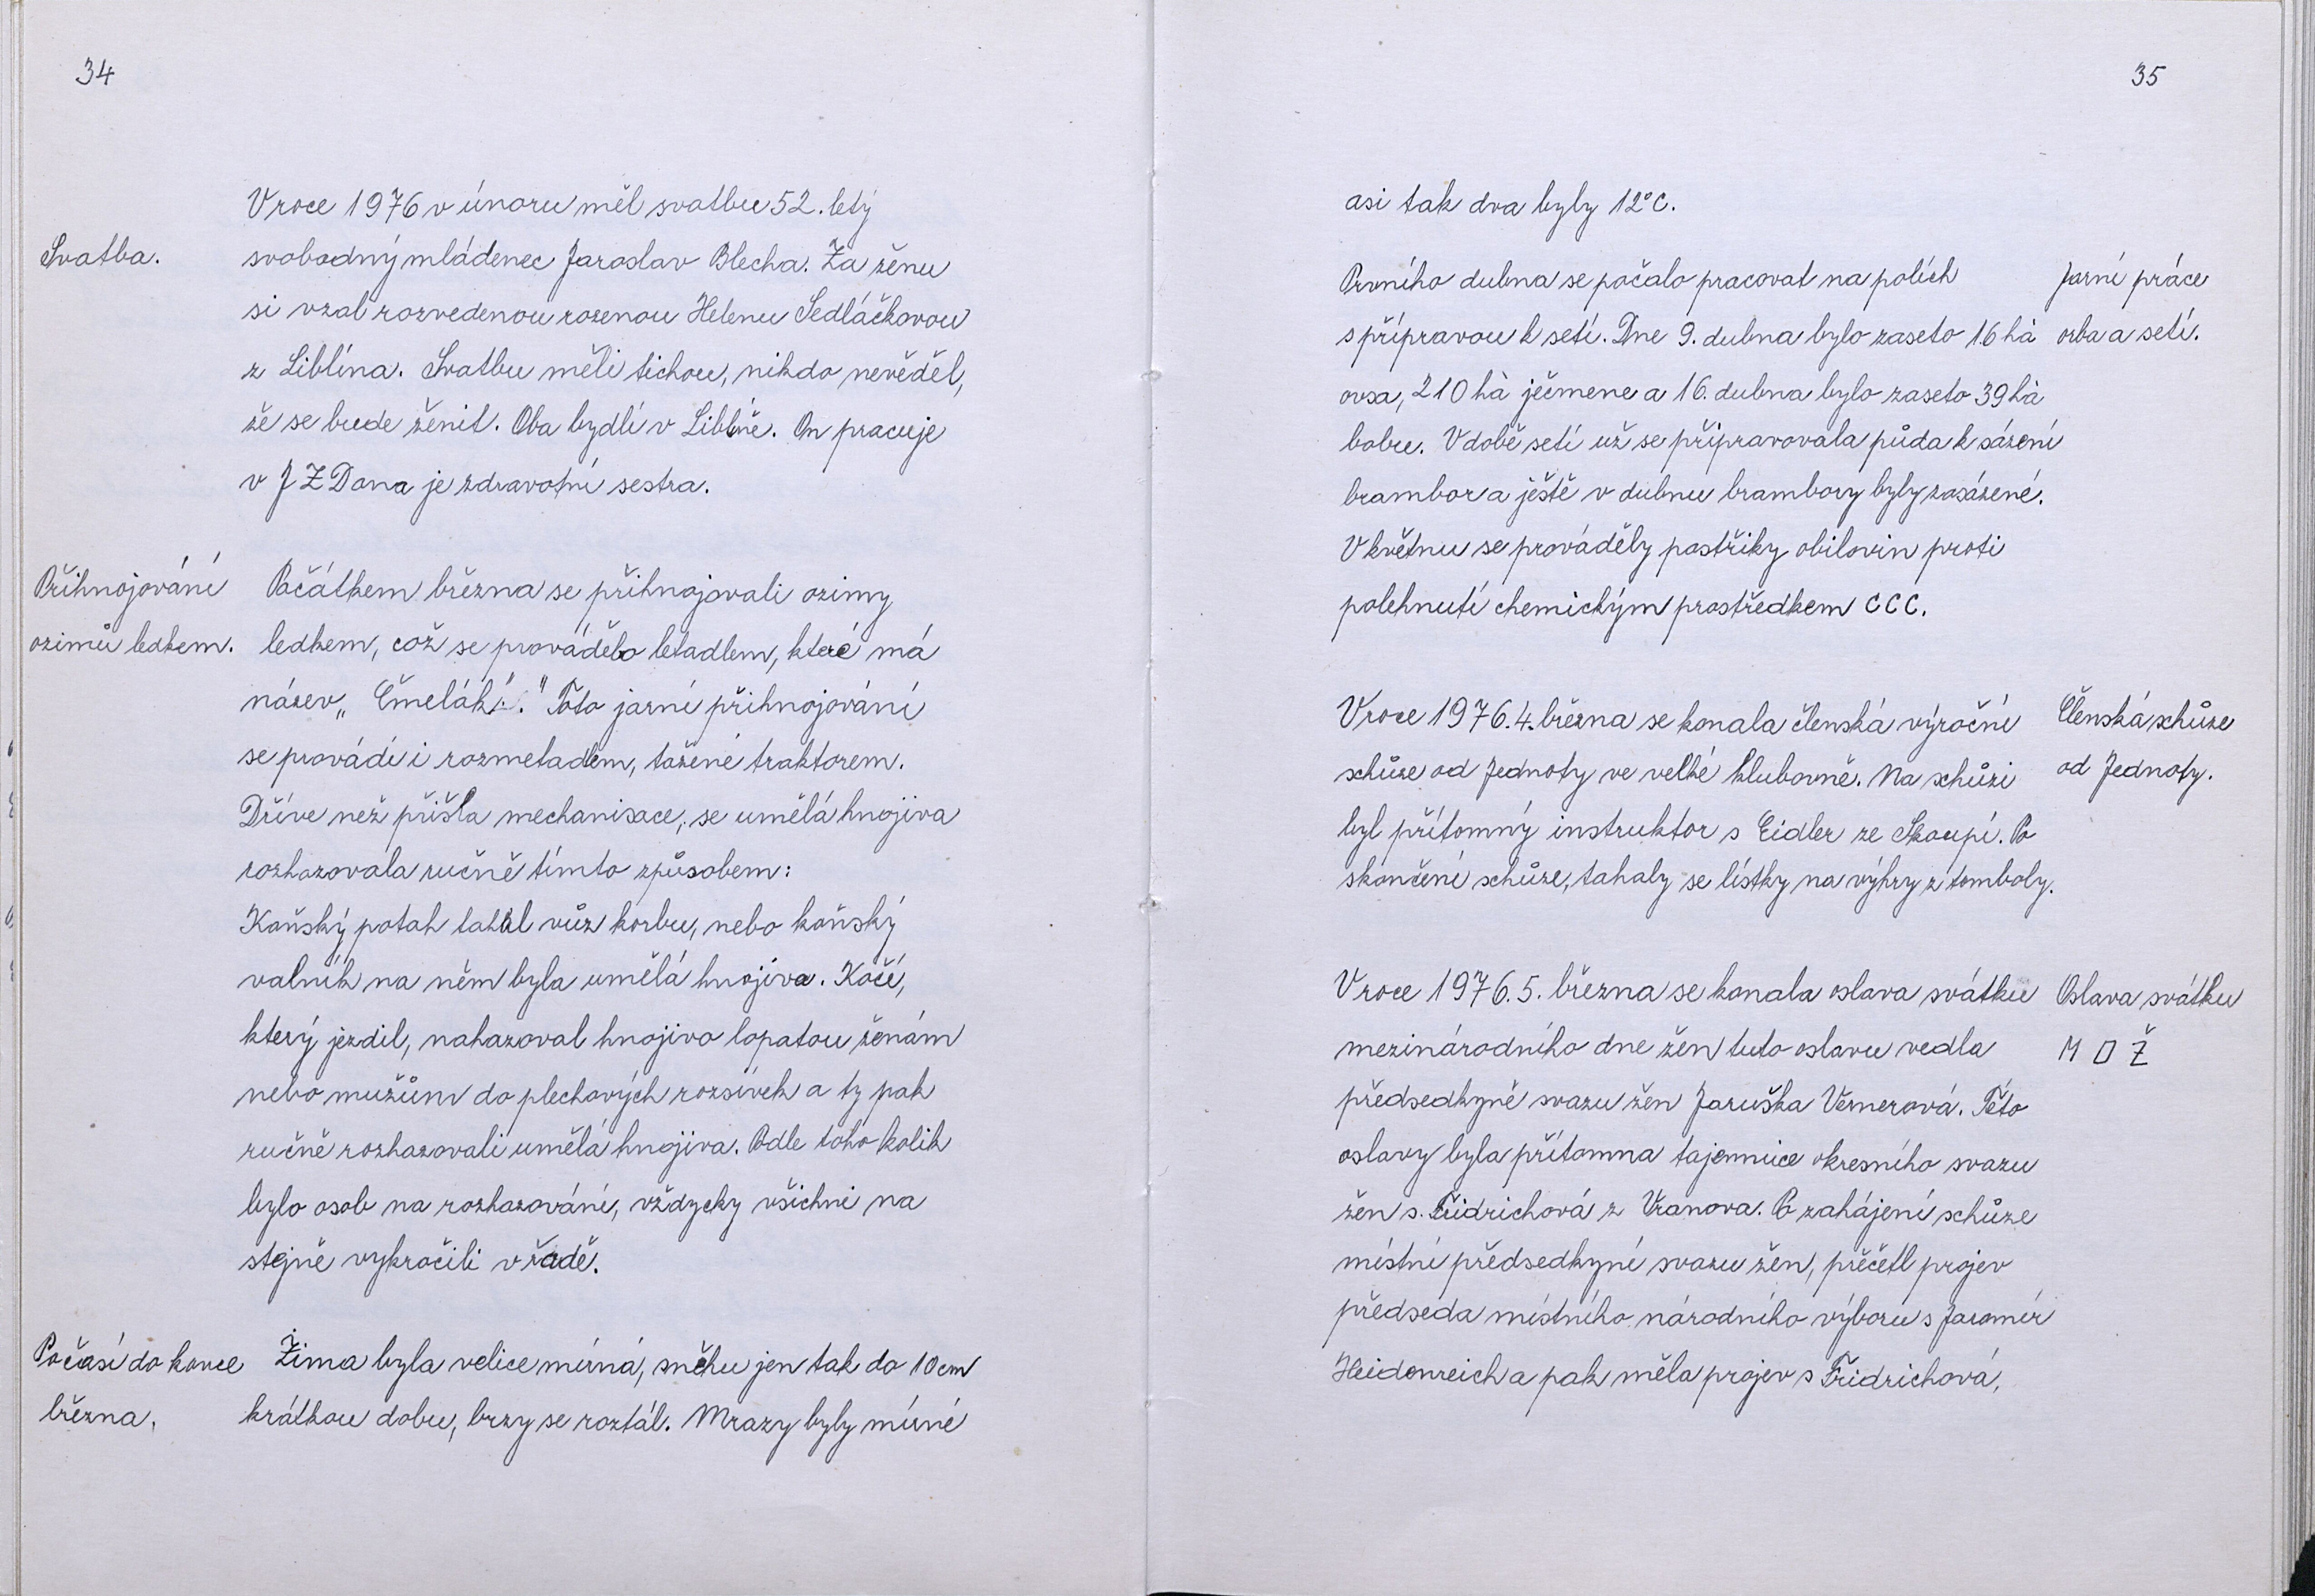 34
V roce 1976 v únoru měl svatbu 52. letý
Svatba.
svobodný mládenec Jaroslav Blecha. Za ženu
si vzal rozvedenou rozenou Helenu Sedláčkovou
z Liblína. Svatbu měli tichou, nikdo nevěděl,
že se bude ženit. Oba bydlí v Liblíně. On pracuje
v J Z D ona je zdravotní sestra.
Přihnojování
ozimů ledkem.
Počátkem března se přihnojovali ozimy
ledkem, což se provádělo letadlem, které má
název „Čmelák." Toto jarní přihnojování
se provádí i rozmetadlem, tažené traktorem.
Dříve než přišla mechanisace, se umělá hnojiva
rozhazovala ručně tímto způsobem:
Koňský potah tahal vůz korbu, nebo koňský
valník na něm byla umělá hnojiva. Kočí,
který jezdil, nahazoval hnojivo lopatou ženám
nebo mužům do plechových rozsívek a ty pak
ručně rozhazovali umělá hnojiva. Podle toho kolik
bylo osob na rozhazování, vždycky všichni na
stejně vykročili v řadě.
Počasí do konce
března.
Zima byla velice mírná, sněhu jen tak do 10 cm
krátkou dobu, brzy se roztál. Mrazy byly mírné
35
asi tak dva byly 12°C.
Prvního dubna se počalo pracovat na polích
s přípravou k setí. Dne 9. dubna bylo zaseto 16 hà
ovsa, 210 hà ječmene a 16. dubna bylo zaseto 39 hà
bobu. V době setí už se připravovala půda k sázení
brambor a ještě v dubnu brambory byly zasázené.
V květnu se prováděly postřiky obilovin proti
polehnutí chemickým prostředkem C C C.
Jarní práce
orba a setí.
V roce 1976. 4. března se konala členská výroční
schůze od Jednoty ve velké klubovně. Na schůzi
byl přítomný instruktor s Eidler ze Skoupí. Po
skončení schůze, tahaly se lístky na výhry z tomboly.
Členská schůze
od Jednoty.
V roce 1976. 5. března se konala oslava svátku
mezinárodního dne žen tuto oslavu vedla
předsedkyně svazu žen Jaruška Vernerová. Této
oslavy byla přítomna tajemnice okresního svazu
žen s. Fridrichová z Vranova. Po zahájení schůze
místní předsedkyní svazu žen, přečetl projev
předseda místního národního výboru s Jaromír
Heidenreich a pak měla projev s Fridrichová,
Oslava svátku
M D Ž